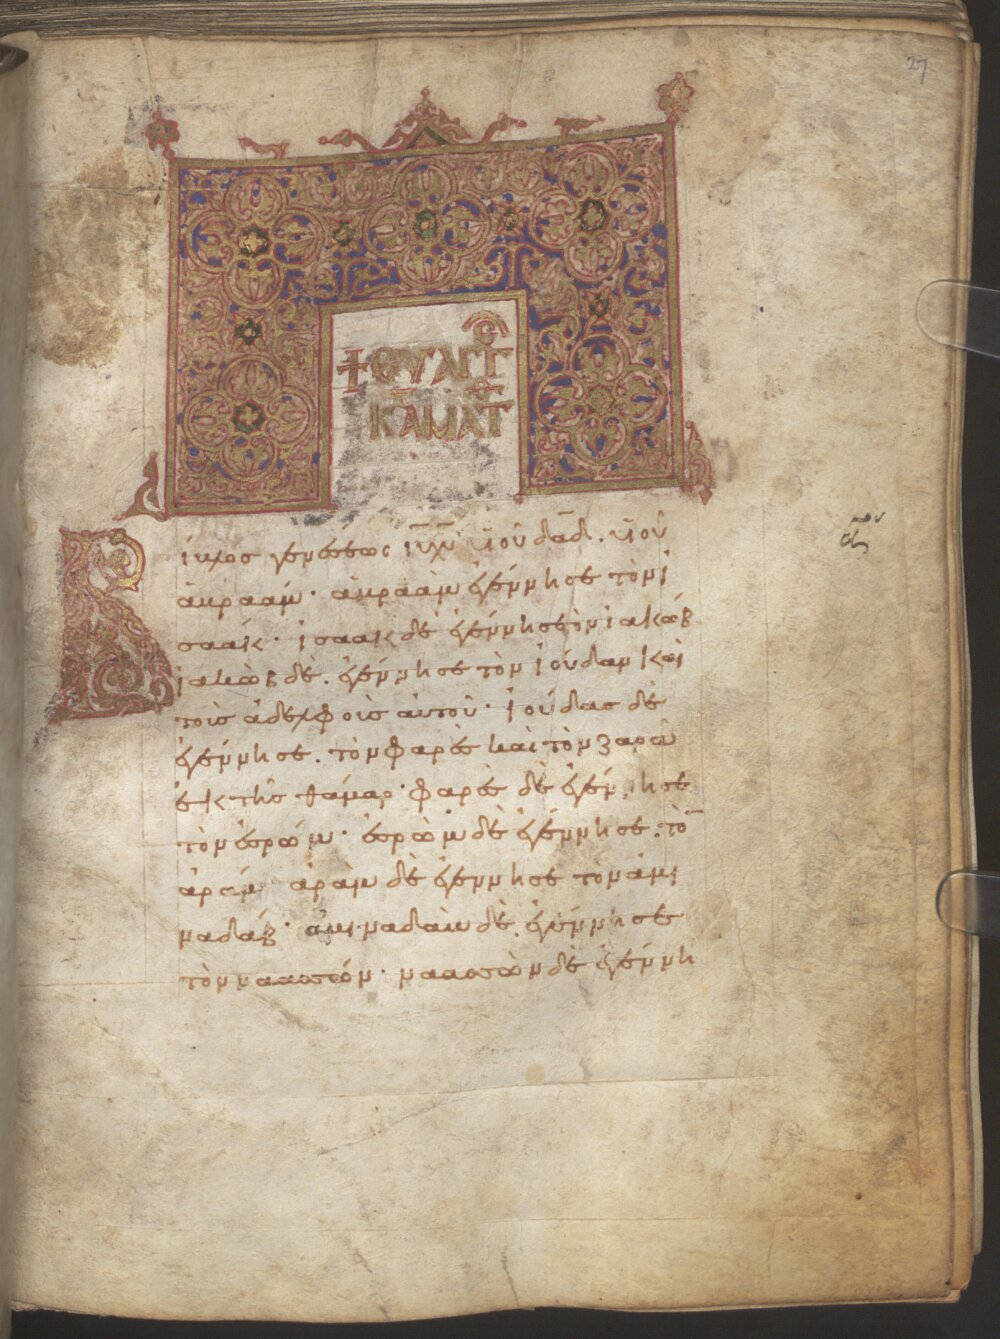 27
ίβλος γενέσεως ῑῡ χ̄ῡ ῡῑοῦ δᾱδ. υἱοῦ
ἀβραάμ · ἀβραὰμ ἐγέννησε τὸν ἰ
σαάκ · ἰσαὰκ δὲ ἐγέννησε τὸν ἰακώβ
ἰακὼβ δὲ . ἐγέννησε τὸν ἰούδαν καὶ
τοὺς ἀδελφοὺς αὐτοῦ · ἰούδας δὲ
ἐγέννησε . τὸν φαρὲς καὶ τὸν ζαρὰ
ἐκ τῆς θάμαρ · φαρὲς δὲ ἐγέννησε
τὸν ἐσρώμ · ἐσρὼμ δὲ ἐγέννησε . τὸ̄
ἀράμ · ἀρὰμ δὲ ἐγέννησε τὸν ἀμι
ναδάβ · ἀμιναδὰβ δὲ . ἐγέννησε
τὸν ναασσών · ναασσὼν δὲ ἐγέννη